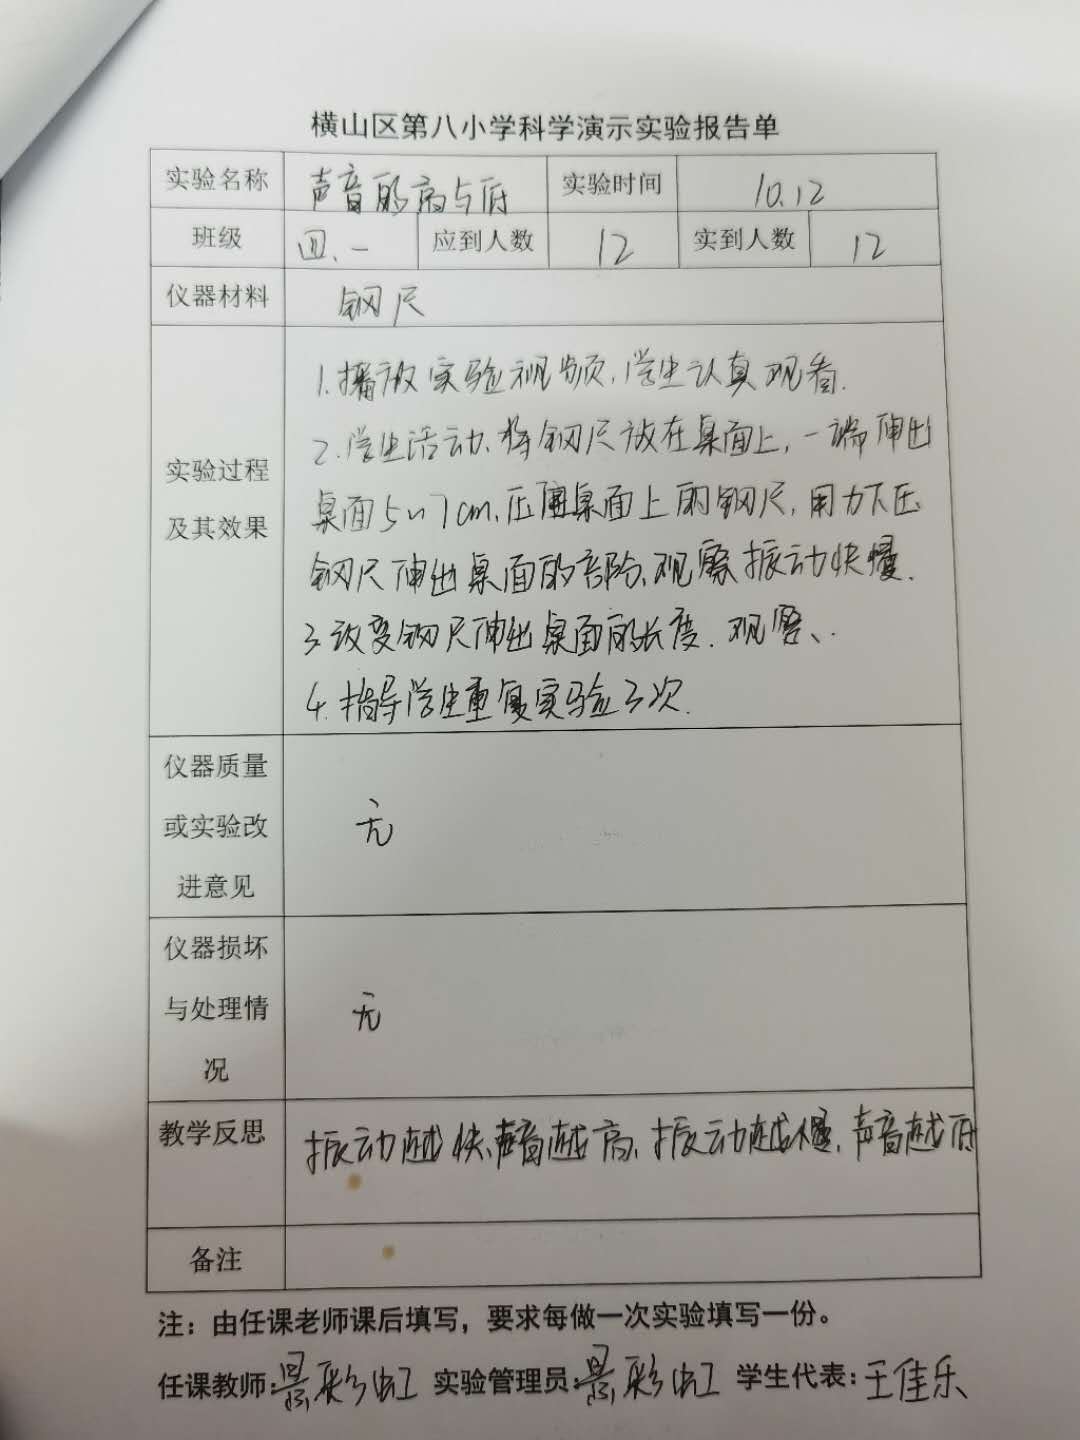 横山区第八小学科学演示实验报告单
实验名称 声音的高与低 实验时间 10.12
班级 四.一 应到人数 12 实到人数 12
仪器材料 钢尺
1.播放实验视频,学生认真观看.
2.学生活动.将钢尺放在桌面上,一端伸出
实验过程
桌面5~7cm.压住桌面上的钢尺,用力下压
及其效果
钢尺伸出桌面的部分,观察振动快慢.
3.改变钢尺伸出桌面的长度.观察、.
4.指导学生重复实验3次.
仪器质量
或实验改
无
进意见
仪器损坏
与处理情
无
况
教学反思 振动越快,声音越高,振动越慢,声音越低
备注
注：由任课老师课后填写，要求每做一次实验填写一份。
任课教师:景彩虹 实验管理员:景彩虹 学生代表：王佳乐